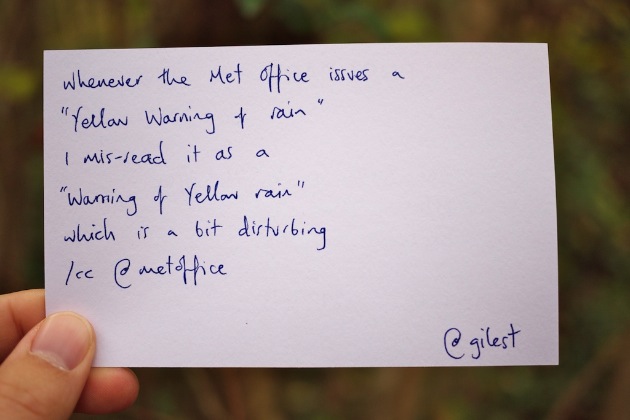 Whenever the Met Office issues a
"Yellow Warning of rain"
I mis-read it as a
"Warning of Yellow rain"
which is a bit disturbing
/cc @metoffice
@gilest